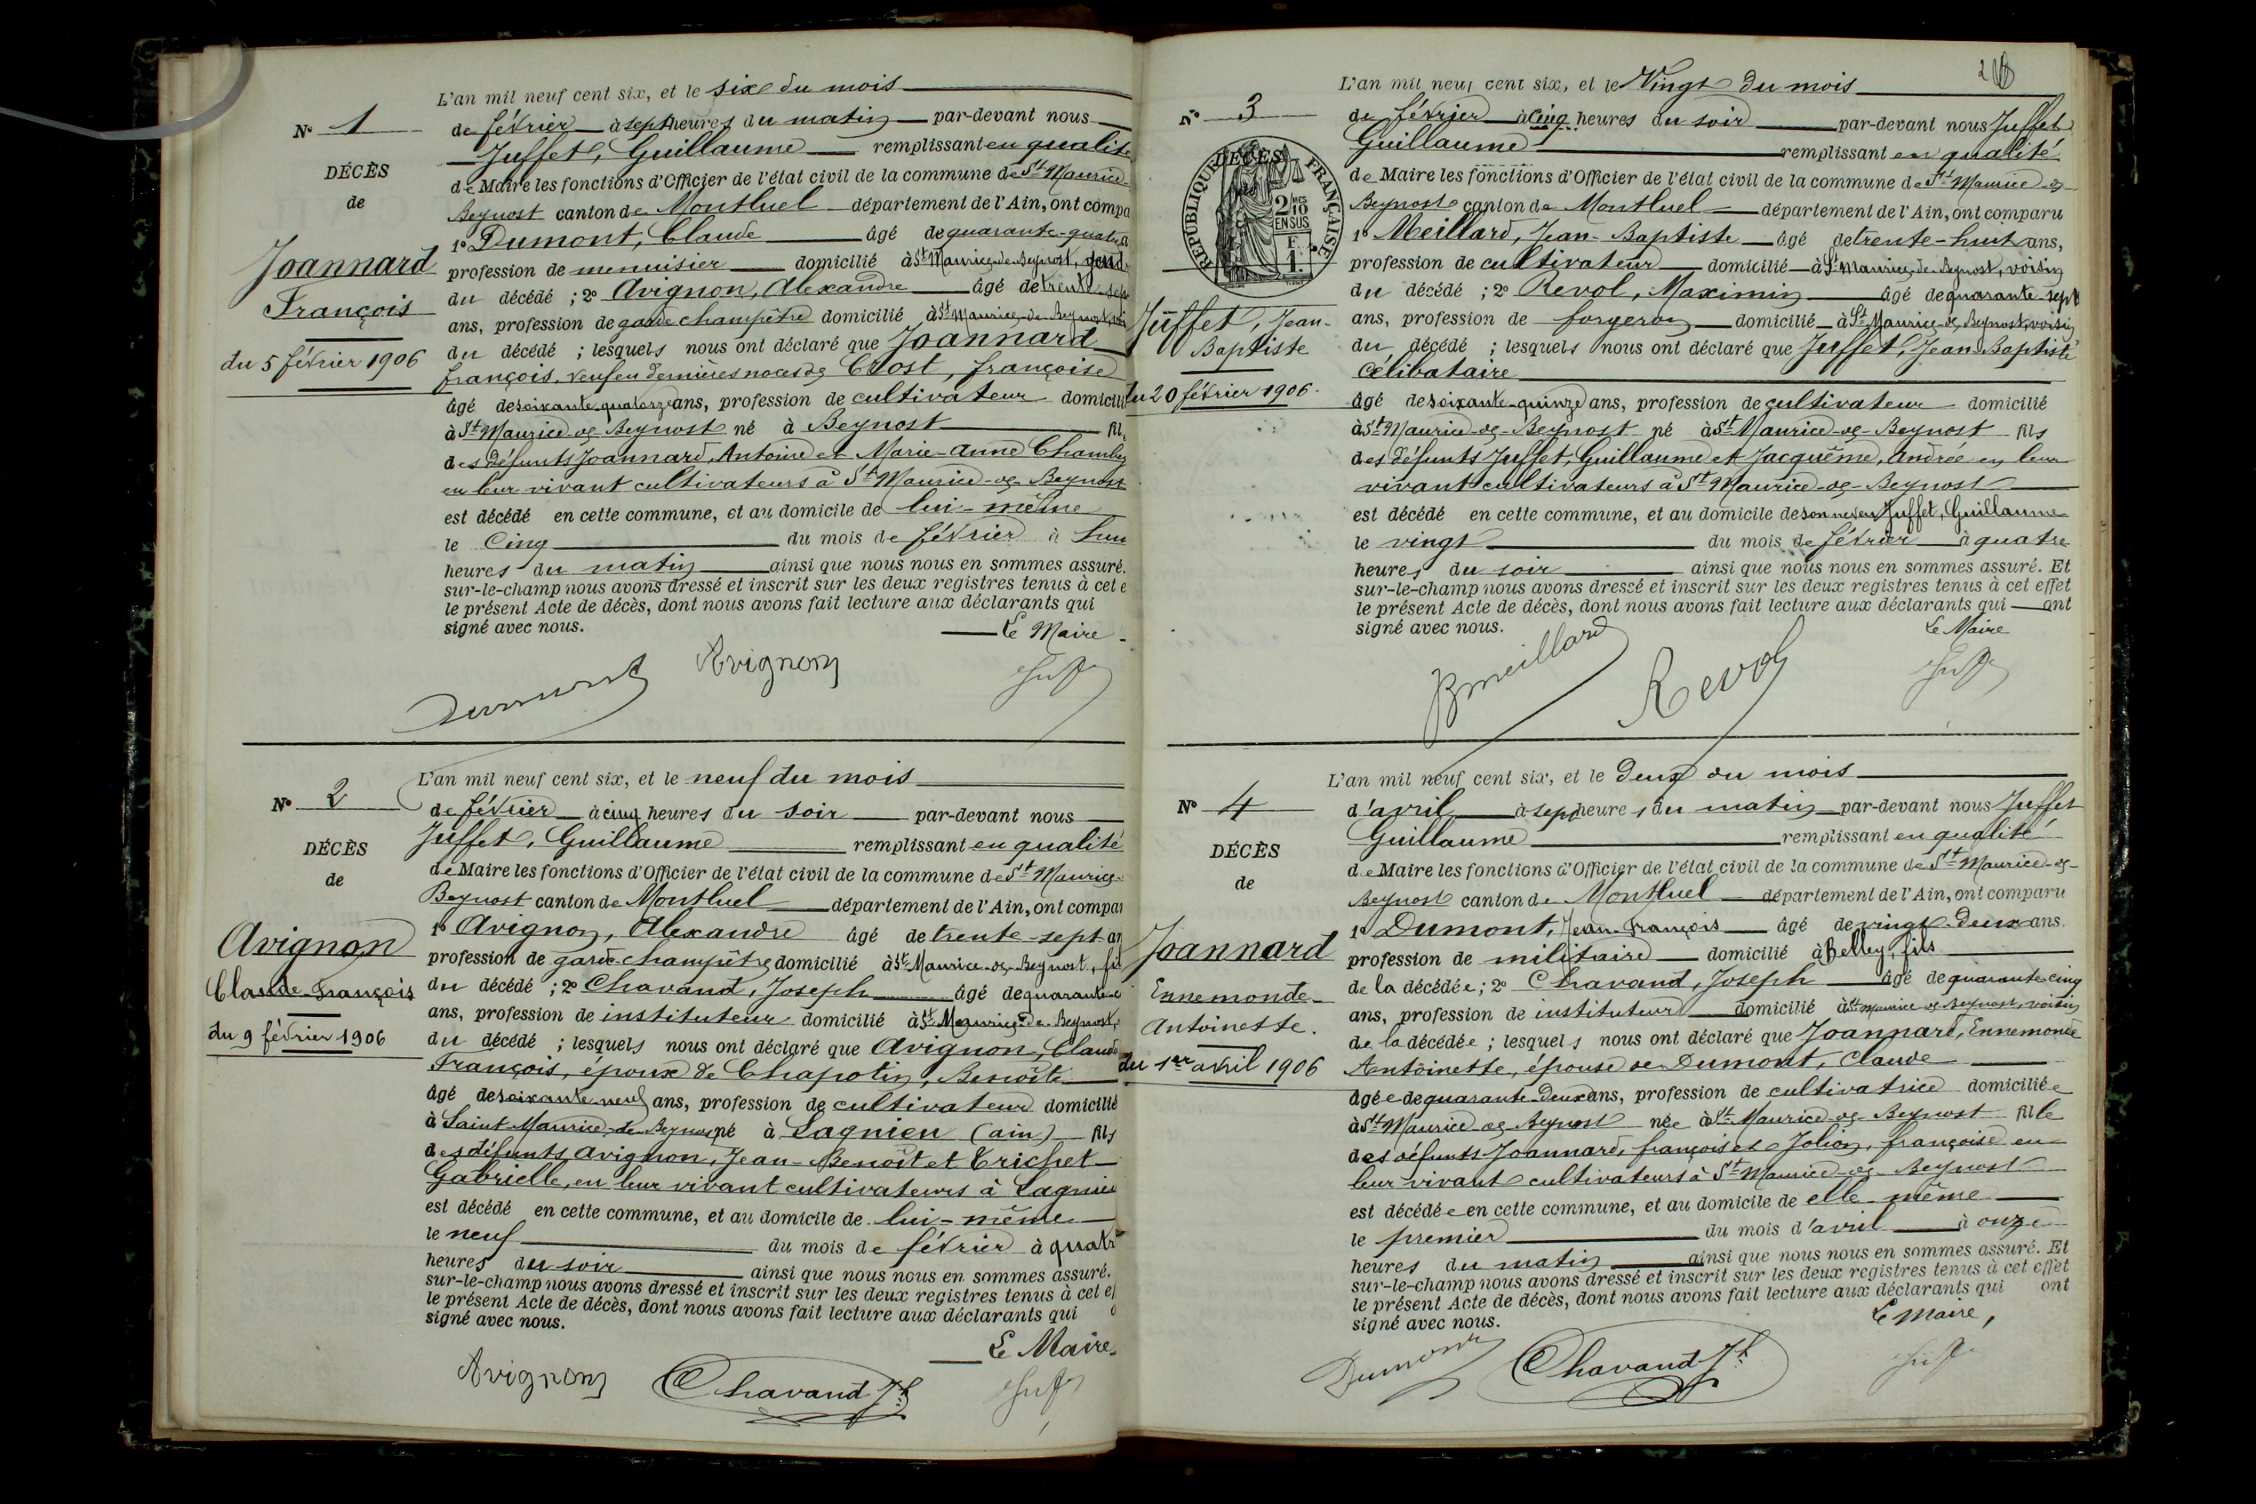 N° 1
DÉCÈS
de
Joannard
François
du 5 février 1906
L'an mil neuf cent six, et le six du mois
de février à sept heures du matin par-devant nous
Juffet, Guillaume remplissant en qualité
de Maire les fonctions d'Officier de l'état civil de la commune de St Maurice-
Beynost canton de Montluel département de l'Ain, ont compa
1° Dumont, Claude âgé de quarante-quatre
profession de menuisier domicilié à St Maurice-de-Beynost, gend
du décédé ; 2° Avignon, Alexandre âgé de trente-sept
ans, profession de garde champêtre domicilié à St Maurice-de-Beynost, voi
du décédé ; lesquels nous ont déclaré que Joannard
François, veuf en dernières noces de Crost, Françoise
âgé de soixante-quatorze ans, profession de cultivateur domicilié
à St Maurice-de-Beynost né à Beynost fils
des défunts Joannard, Antoine et Marie-Anne
en leur vivant cultivateurs à St Maurice-de-Beynost
est décédé en cette commune, et au domicile de lui-même
le Cinq du mois de février à
heures du matin ainsi que nous nous en sommes assuré.
sur-le-champ nous avons dressé et inscrit sur les deux registres tenus à cet e
le présent Acte de décès, dont nous avons fait lecture aux déclarants qui
signé avec nous.
Le Maire
Dumont Avignon
N° 2
DÉCÈS
de
Avignon
Claude-François
du 9 février 1906
L'an mil neuf cent six, et le neuf du mois
de février à cinq heures du soir par-devant nous
Juffet, Guillaume remplissant en qualité
de Maire les fonctions d'Officier de l'état civil de la commune de St Maurice-
Beynost canton de Montluel département de l'Ain, ont compar
1° Avignon, Alexandre âgé de trente-sept an
profession de garde-champêtre domicilié à St Maurice-de-Beynost, fils
du décédé ; 2° Chavand, Joseph âgé de quarante-c
ans, profession de instituteur domicilié à St Maurice-de-Beynost,
du décédé ; lesquels nous ont déclaré que Avignon, Claude
François, époux de Chapotin, Benoîte
âgé de soixante-neuf ans, profession de cultivateur domicilié
à Saint-Maurice-de-Beynost né à Lagnieu (ain) fils
des défunts Avignon, Jean-Benoît et Trichet
Gabrielle, en leur vivant cultivateurs à Lagnieu
est décédé en cette commune, et au domicile de lui-même
le neuf du mois de février à quatre
heures du soir ainsi que nous nous en sommes assuré.
sur-le-champ nous avons dressé et inscrit sur les deux registres tenus à cet ef
le présent Acte de décès, dont nous avons fait lecture aux déclarants qui o
signé avec nous.
Le Maire
Avignon Chavand Jh
N° 3
RÉPUBLIQUE FRANÇAISE
DÉCÈS
2 10 MES
EN SUS
F.
1.
Juffet, Jean-
Baptiste
du 20 février 1906
L'an mil neuf cent six, et le Vingt du mois
de février à cinq heures du soir par-devant nous Juffet
Guillaume remplissant en qualité
de Maire les fonctions d'Officier de l'état civil de la commune de St Maurice-de-
Beynost canton de Montluel département de l'Ain, ont comparu
1° Meillard, Jean-Baptiste âgé de trente-huit ans,
profession de cultivateur domicilié à St Maurice-de-Beynost, voisin
du décédé ; 2° Revol, Maximin âgé de quarante-sept
ans, profession de forgeron domicilié à St Maurice-de-Beynost, voisin
du décédé ; lesquels nous ont déclaré que Juffet, Jean-Baptiste
Célibataire
âgé de soixante-quinze ans, profession de cultivateur domicilié
à St Maurice-de-Beynost né à St Maurice-de-Beynost fils
des défunts Juffet, Guillaume et Jacquême, Andrée en leur
vivant cultivateurs à St Maurice-de-Beynost
est décédé en cette commune, et au domicile de son neveu Juffet, Guillaume
le vingt du mois de février à quatre
heures du soir ainsi que nous nous en sommes assuré. Et
sur-le-champ nous avons dressé et inscrit sur les deux registres tenus à cet effet
le présent Acte de décès, dont nous avons fait lecture aux déclarants qui ont
signé avec nous.
Le Maire
JBmeillard Revol
N° 4
DÉCÈS
de
Joannard
Ennemonde-
Antoinette.
du 1er avril 1906
L'an mil neuf cent six, et le deux du mois
d'avril à sept heures du matin par-devant nous Juffet
Guillaume remplissant en qualité
de Maire les fonctions d'Officier de l'état civil de la commune de St Maurice-de-
Beynost canton de Montluel département de l'Ain, ont comparu
1° Dumont, Jean-François âgé de vingt-deux ans.
profession de militaire domicilié à Belley, fils
de la décédée ; 2° Chavand, Joseph âgé de quarante-cinq
ans, profession de instituteur domicilié à St Maurice-de-Beynost, voisin
de la décédée ; lesquels nous ont déclaré que Joannard, Ennemonde
Antoinette, épouse de Dumont, Claude
âgée de quarante-deux ans, profession de cultivatrice domiciliée
à St Maurice-de-Beynost née à St Maurice-de-Beynost fille
des défunts Joannard, François et Jolion, françoise en
leur vivant cultivateurs à St Maurice-de-Beynost
est décédée en cette commune, et au domicile de elle-même
le premier du mois d'avril à onze
heures du matin ainsi que nous nous en sommes assuré. Et
sur-le-champ nous avons dressé et inscrit sur les deux registres tenus à cet effet
le présent Acte de décès, dont nous avons fait lecture aux déclarants qui ont
signé avec nous.
Le Maire,
Dumont Chavand Jh